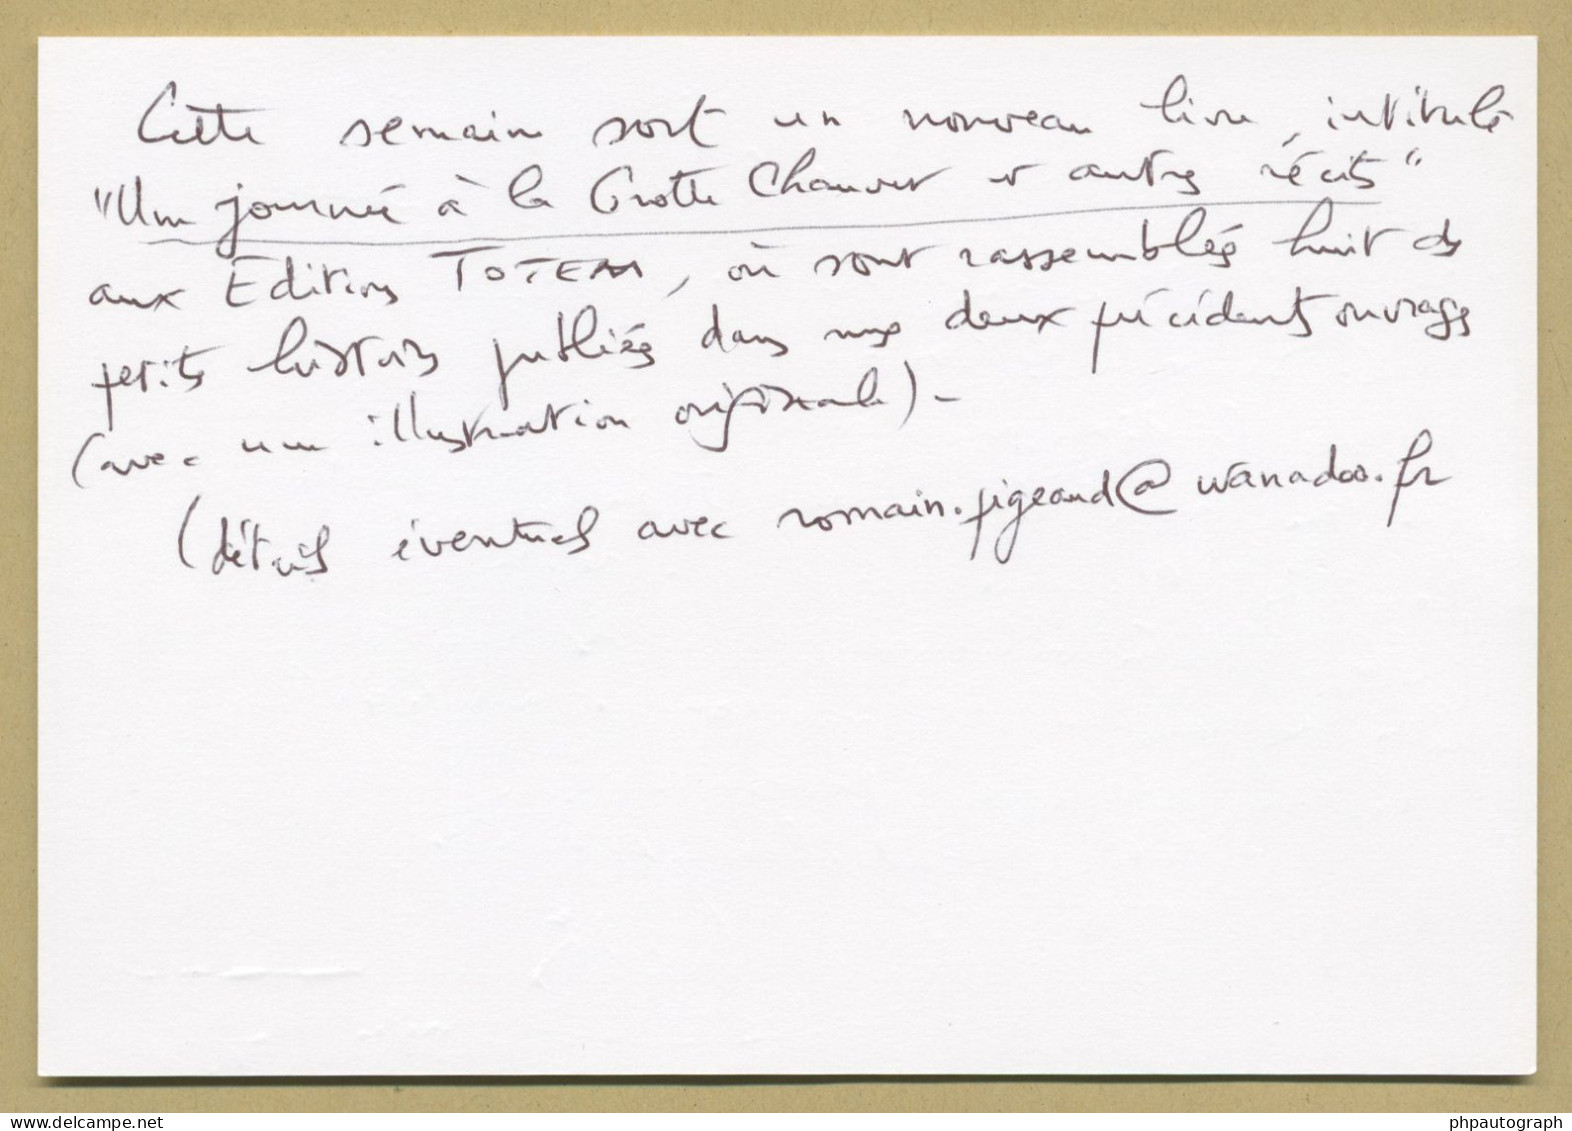 Cette semaine sort un nouveau livre, intitulé
"Une journée à la Grotte Chauvet et autres récits"
aux Editions TOTEM, où sont rassemblés huit des
petits histoires publiées dans mes deux précédents ouvrages
(avec une illustration originale) -
(détails éventuels avec romain.pigeaud@wanadoo.fr
www.delcampe.net
phpautograph